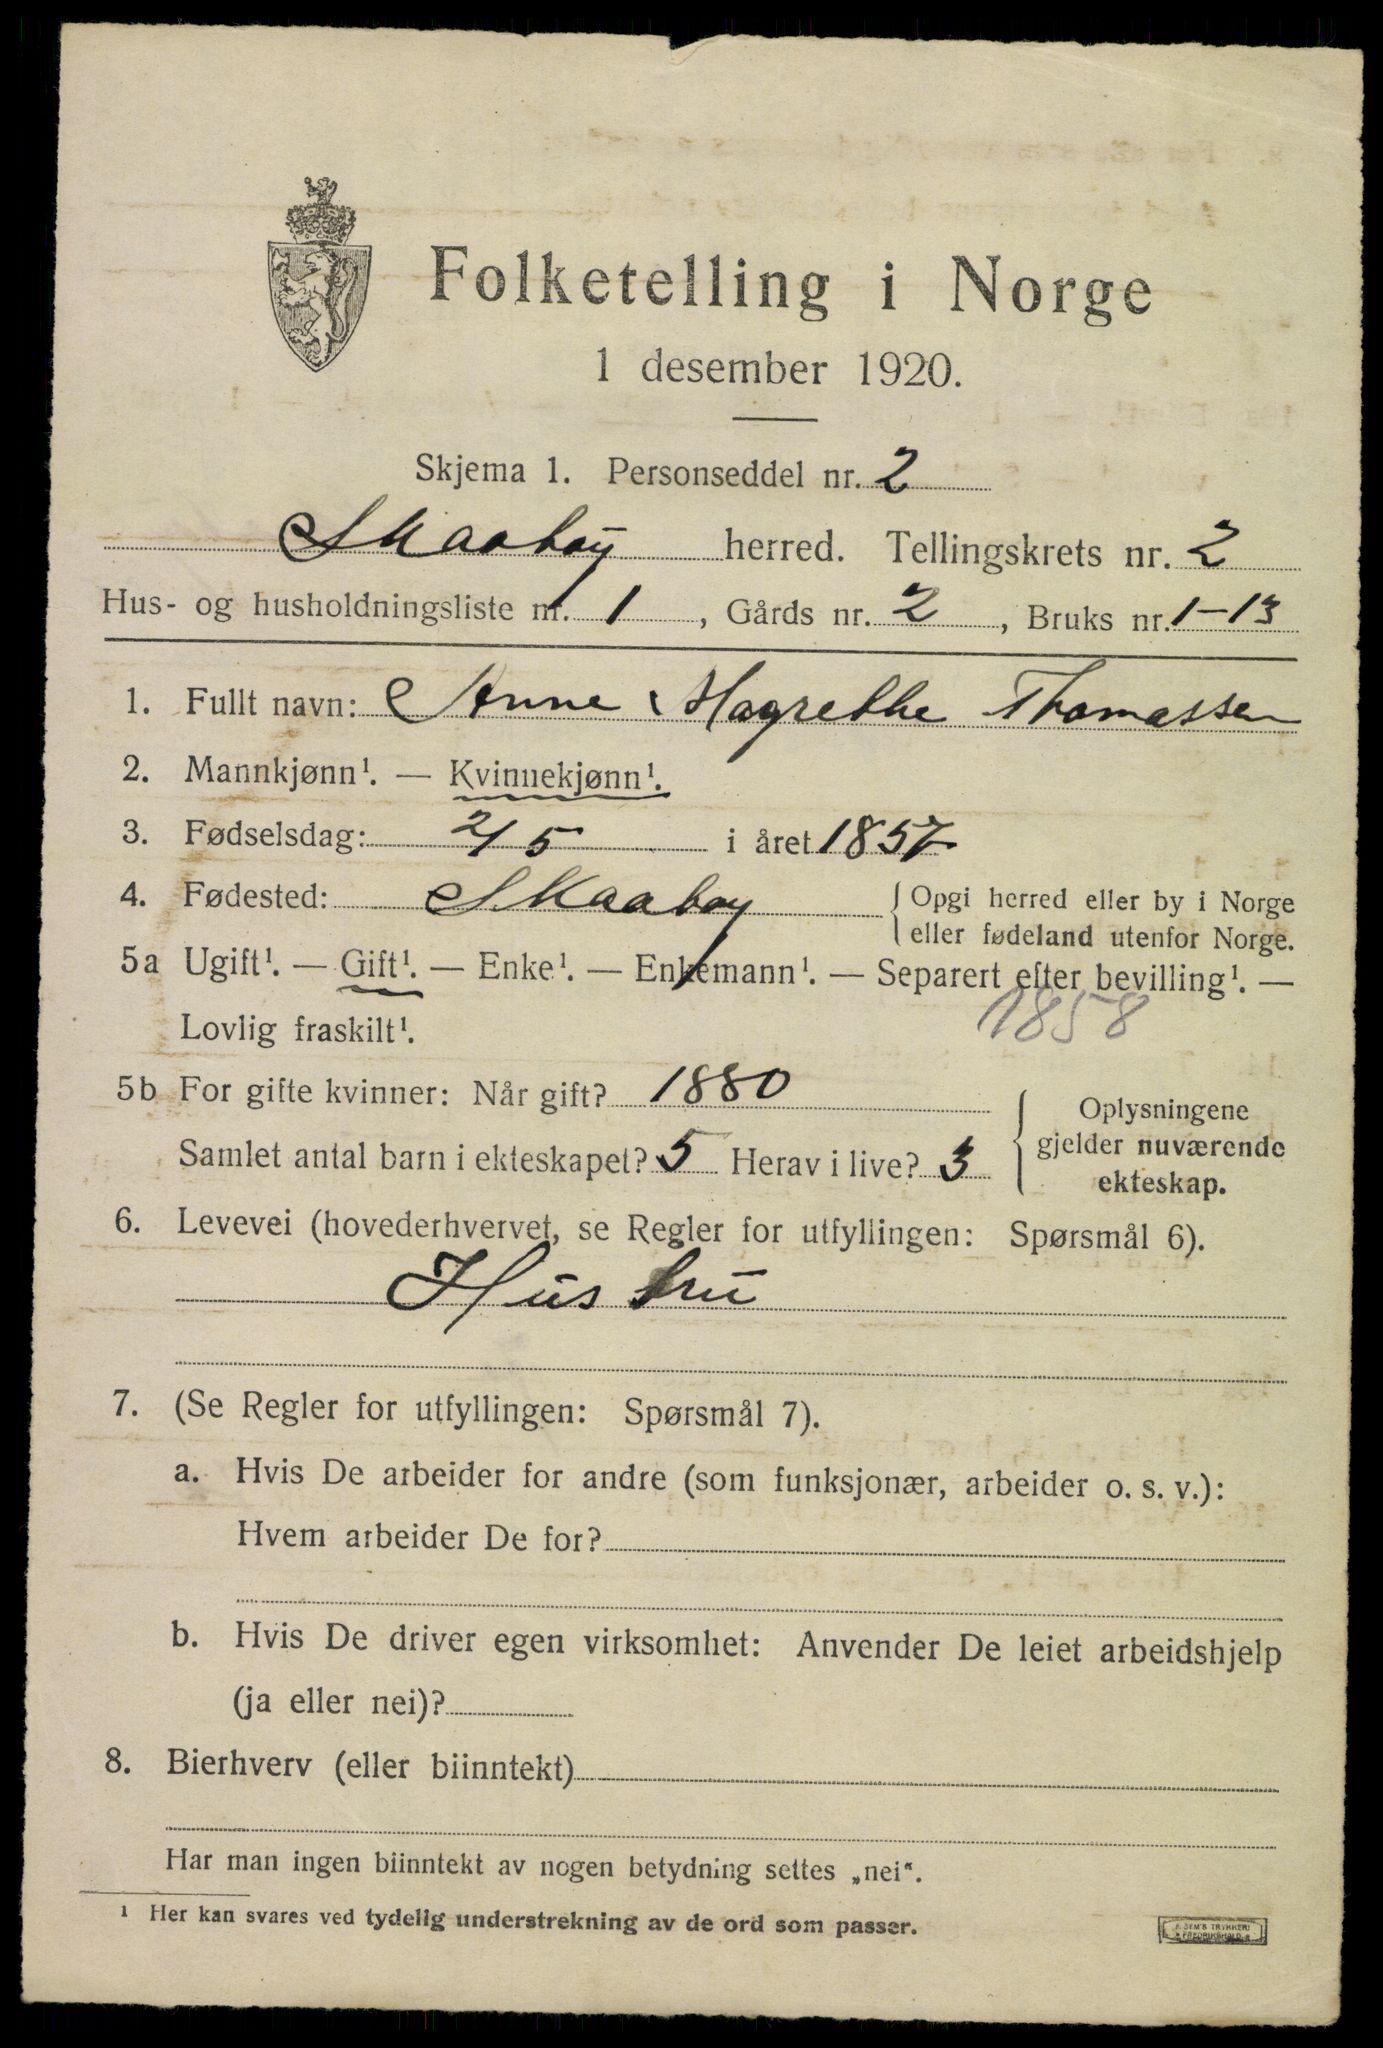 Folketelling i Norge
1 desember 1920.
Skjema 1. Personseddel nr. 2
Skaatøy herred. Tellingskrets nr. 2
Hus- og husholdningsliste nr. 1, Gårds nr. 2, Bruks nr. 1-13
1. Fullt navn: Anne Magrethe Thomassen
2. Mannkjønn¹. — Kvinnekjønn¹.
3. Fødselsdag: 2/5 i året 1857
4. Fødested: Skaatøy { Opgi herred eller by i Norge
eller fødeland utenfor Norge.
5a Ugift¹. — Gift¹. — Enke¹. — Enkemann¹. — Separert efter bevilling¹. —
Lovlig fraskilt¹. 1858
5b For gifte kvinner: Når gift? 1880
Samlet antal barn i ekteskapet? 5 Herav i live? 3
{ Oplysningene
gjelder nuværende
ekteskap.
6. Levevei (hovederhvervet, se Regler for utfyllingen: Spørsmål 6).
Hustru
7. (Se Regler for utfyllingen: Spørsmål 7).
a. Hvis De arbeider for andre (som funksjonær, arbeider o. s. v.):
Hvem arbeider De for?
b. Hvis De driver egen virksomhet: Anvender De leiet arbeidshjelp
(ja eller nei)?
8. Bierhverv (eller biinntekt)
Har man ingen biinntekt av nogen betydning settes „nei“.
¹ Her kan svares ved tydelig understrekning av de ord som passer.